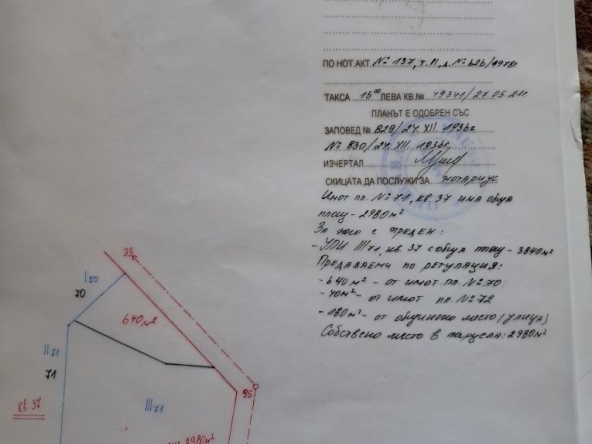 ПО НОТ. АКТ № 137, т. II, д. № 626/1978г
ТАКСА 15⁰⁰ ЛЕВА КВ.№ 49341/27.05.
ПЛАНЪТ Е ОДОБРЕН СЪС
ЗАПОВЕД № 829/24. XII. 1936г
№ 830/24. XII. 1936г
ИЗЧЕРТАЛ
СКИЦАТА ДА ПОСЛУЖИ ЗА нотариус
Имот пл. № 71, кв. 37 има обща
площ - 2980м²
За него е отреден:
- УПИ III 71, кв. 37 с обща площ - 3840м²
Предаваеми по регулация:
- 640м² - от имот пл. № 70
- 40м² - от имот пл. № 72
- 180м² - от общинско место (улица)
Собствено место в парцела: 2980м²
33
I 70
70
640м²
II 71
71
95
III 71
кв. 37
2980м²